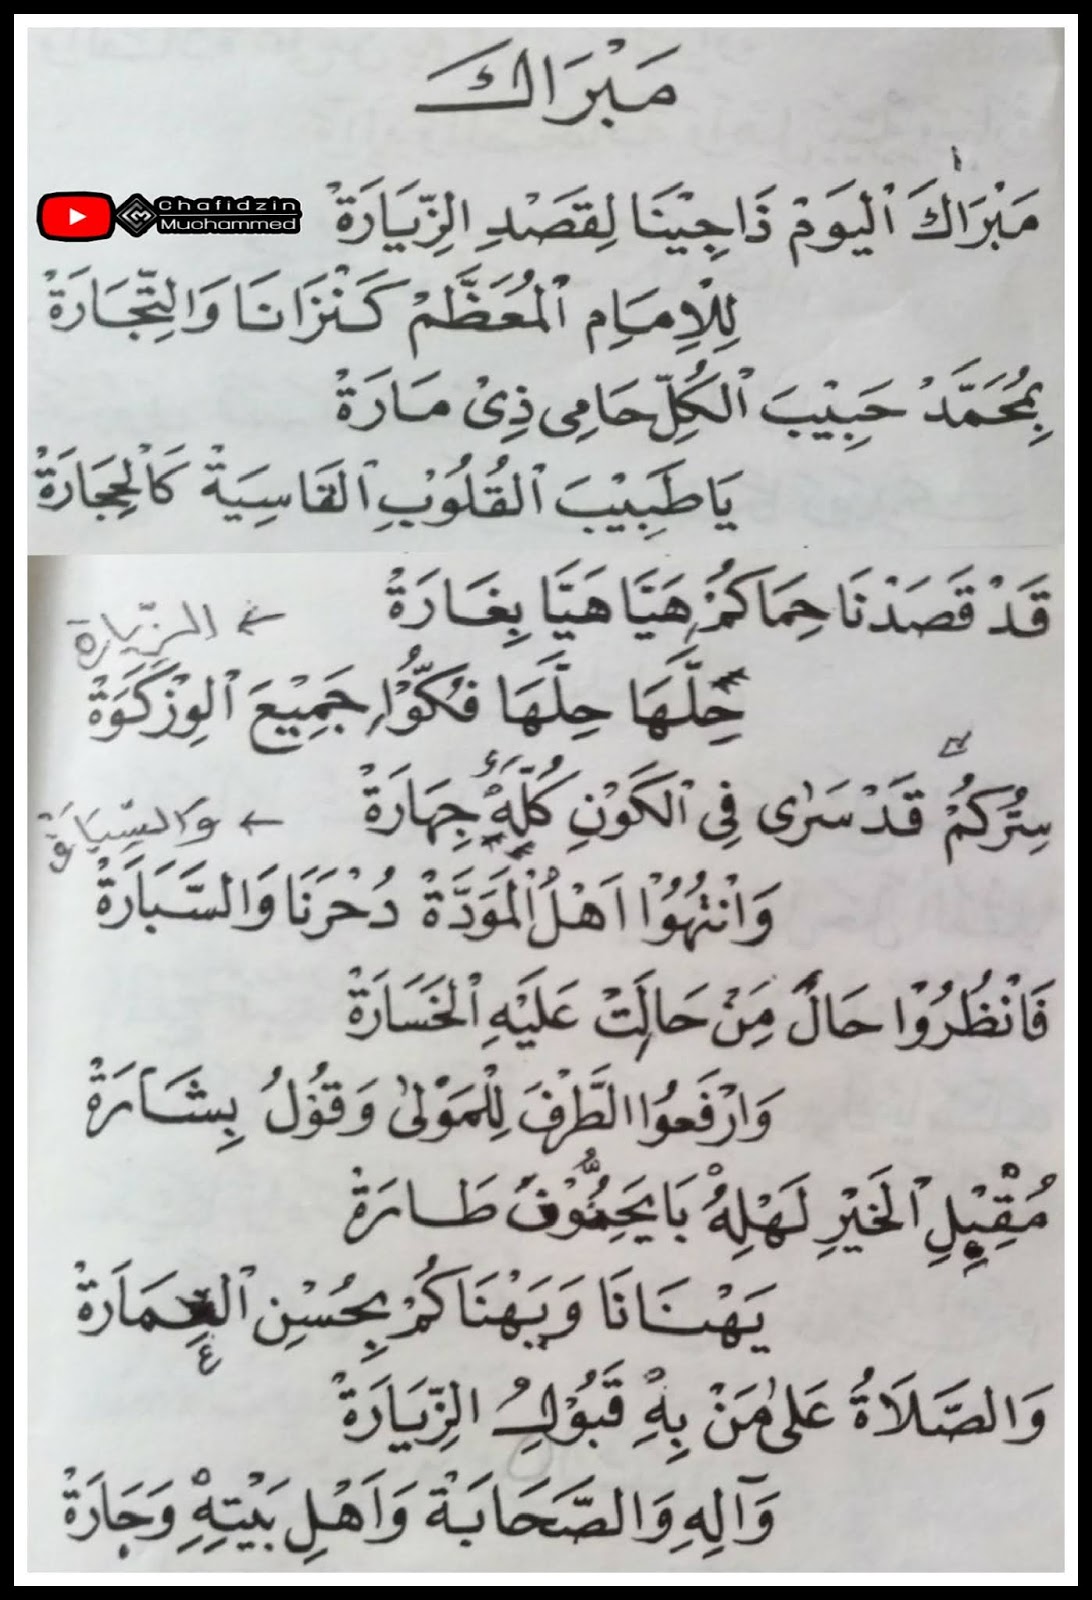 مَبْرَاكْ
Chafidzin
Muohammed
مَبْرَاكَ الْيَوْمْ ذَاجِيْنَا لِقَصْدِ الزِّيَارَةْ
لِلْاِمَامِ الْمُعَظَّمْ كَنْزَانَا وَالتِّجَارَةْ
بِمُحَمَّدْ حَبِيْبَ الْكُلِّ حَامِى ذِىْ مَارَةْ
يَاطَبِيْبَ الْقُلُوْبِ الْقَاسِيَةْ كَالْحِجَارَةْ
قَدْ قَصَدْنَا حِمَاكُمْ هَيَّا هَيَّا بِغَارَةْ
← الزِّيَارَة
حِلَّهَا حِلَّهَا فُكُّوْا جَمِيْعَ الْوِزْكَوَةْ
سِتْرُكُمْ قَدْ سَرٰى فِى الْكَوْنِ كُلِّهْ جِهَارَةْ
← وَالسِّيَارَةْ
وَانْتُهُوْا اَهْلُ الْمَوَدَّةْ دُخْرَنَا وَالسَّبَارَةْ
فَانْظُرُوْا حَالَ مَنْ حَالَتْ عَلَيْهِ الْخَسَارَةْ
وَارْفَعُوا الطَّرْفَ لِلْمَوْلٰى وَقُوْلُ بِشَارَةْ
مُقْبِلِ الْخَيْرِ لَهْلِهْ بَايَحِفُّوْفَ طَارَةْ
يَهْنَانَا وَيَهْنَاكُمْ بِحُسْنِ الْعِمَارَةْ
ع
وَالصَّلَاةُ عَلٰى مَنْ بِهْ قَبُوْلِ الزِّيَارَةْ
وَآلِهِ وَالصَّحَابَةْ وَاَهْلِ بَيْتِهِ وَجَارَةْ